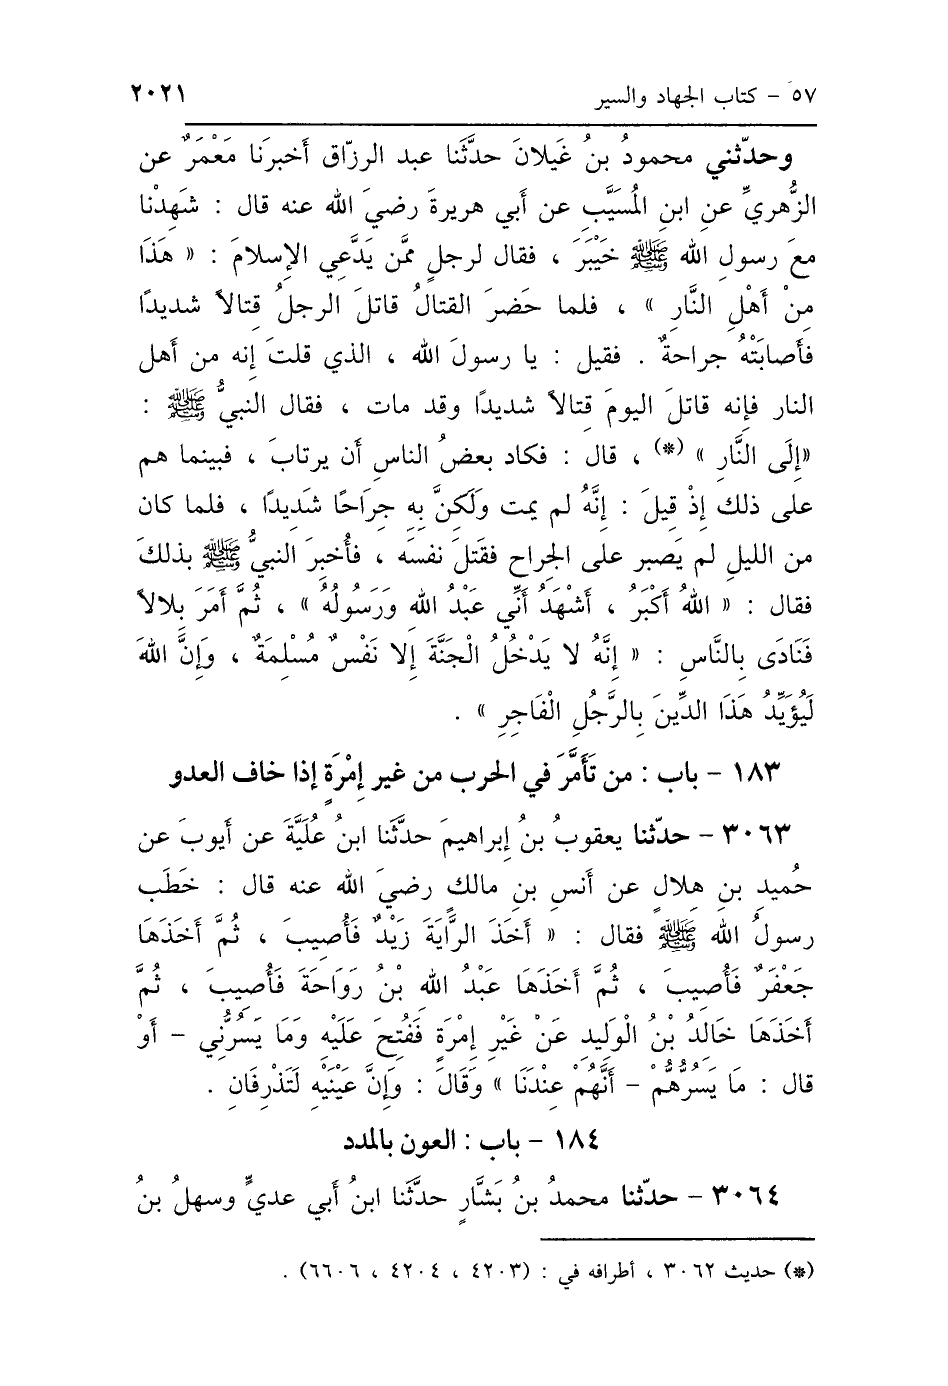 ٥٧ - كتاب الجهاد والسير ٢٠٢١
وحدّثني محمودُ بنُ غَيلانَ حدَّثَنا عبد الرزّاق أَخبرَنا مَعْمَرٌ عن
الزُّهريِّ عنِ ابنِ المُسَيَّبِ عن أَبي هريرةَ رضيَ الله عنه قال : شَهِدْنا
معَ رسولِ الله ﷺ خَيْبَرَ ، فقال لرجلٍ ممَّن يَدَّعي الإسلامَ : « هَذَا
مِنْ أَهْلِ النَّارِ » ، فلما حَضرَ القتالُ قاتلَ الرجلُ قتالاً شديدًا
فأَصابَتْهُ جراحةٌ . فقيل : يا رسولَ الله ، الذي قلتَ إنه من أَهل
النار فإنه قاتلَ اليومَ قِتالاً شديدًا وقد مات ، فقال النبيُّ ﷺ :
«إلَى النَّارِ » (*) ، قال : فكاد بعضُ الناسِ أَن يرتابَ ، فبينما هم
على ذلك إذْ قِيلَ : إنَّهُ لم يمت وَلَكِنَّ بِهِ جِرَاحًا شَدِيدًا ، فلما كان
من الليلِ لم يَصبر على الجِراح فقَتلَ نفسَه ، فأُخبِرَ النبيُّ ﷺ بذلكَ
فقال : « اللهُ أَكْبَرُ ، أَشْهَدُ أَنِّي عَبْدُ الله وَرَسُولُهُ » ، ثُمَّ أَمَرَ بِلالاً
فَنَادَى بِالنَّاسِ : « إنَّهُ لا يَدْخُلُ الْجَنَّةَ إلا نَفْسٌ مُسْلِمَةٌ ، وَإنَّ اللهَ
لَيُؤَيِّدُ هَذَا الدِّينَ بِالرَّجُلِ الْفَاجِرِ » .
١٨٣ - باب : من تَأَمَّرَ في الحرب من غير إمْرَةٍ إذا خاف العدو
٣٠٦٣ - حدّثنا يعقوبُ بنُ إبراهيمَ حدَّثَنا ابنُ عُلَيَّةَ عن أَيوبَ عن
حُميدِ بنِ هلالٍ عن أَنسِ بنِ مالكٍ رضيَ الله عنه قال : خَطَب
رسولُ الله ﷺ فقال : « أَخَذَ الرَّايَةَ زَيْدٌ فَأُصِيبَ ، ثُمَّ أَخَذَهَا
جَعْفَرٌ فَأُصِيبَ ، ثُمَّ أَخَذَهَا عَبْدُ الله بْنُ رَوَاحَةَ فَأُصِيبَ ، ثُمَّ
أَخَذَهَا خَالِدُ بْنُ الْوَلِيدِ عَنْ غَيْرِ إمْرَةٍ فَفُتِحَ عَلَيْهِ وَمَا يَسُرُّنِي - أَوْ
قال : مَا يَسُرُّهُمْ - أَنَّهُمْ عِنْدَنَا » وَقَالَ : وَإنَّ عَيْنَيْهِ لَتَذْرِفَانِ .
١٨٤ - باب : العون بالمدد
٣٠٦٤ - حدّثنا محمدُ بنُ بَشَّارٍ حدَّثَنا ابنُ أَبي عديٍّ وسهلُ بنُ
(*) حديث ٣٠٦٢ ، أطرافه في : (٤٢٠٣ ، ٤٢٠٤ ، ٦٦٠٦) .